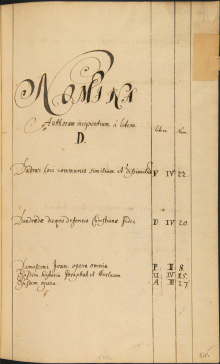 NOMINA
Authorum incipientium à litera
D.
Libr. Num.
loci communes similium et dissimilium F IV 22.
de defensio Christianæ fidei D IV 20.
Damasceni Joan. opera omnia F. II 8.
Ejusdem historia Josaphat et Barlaam U IV 85.
Ejusdem opera A III 27